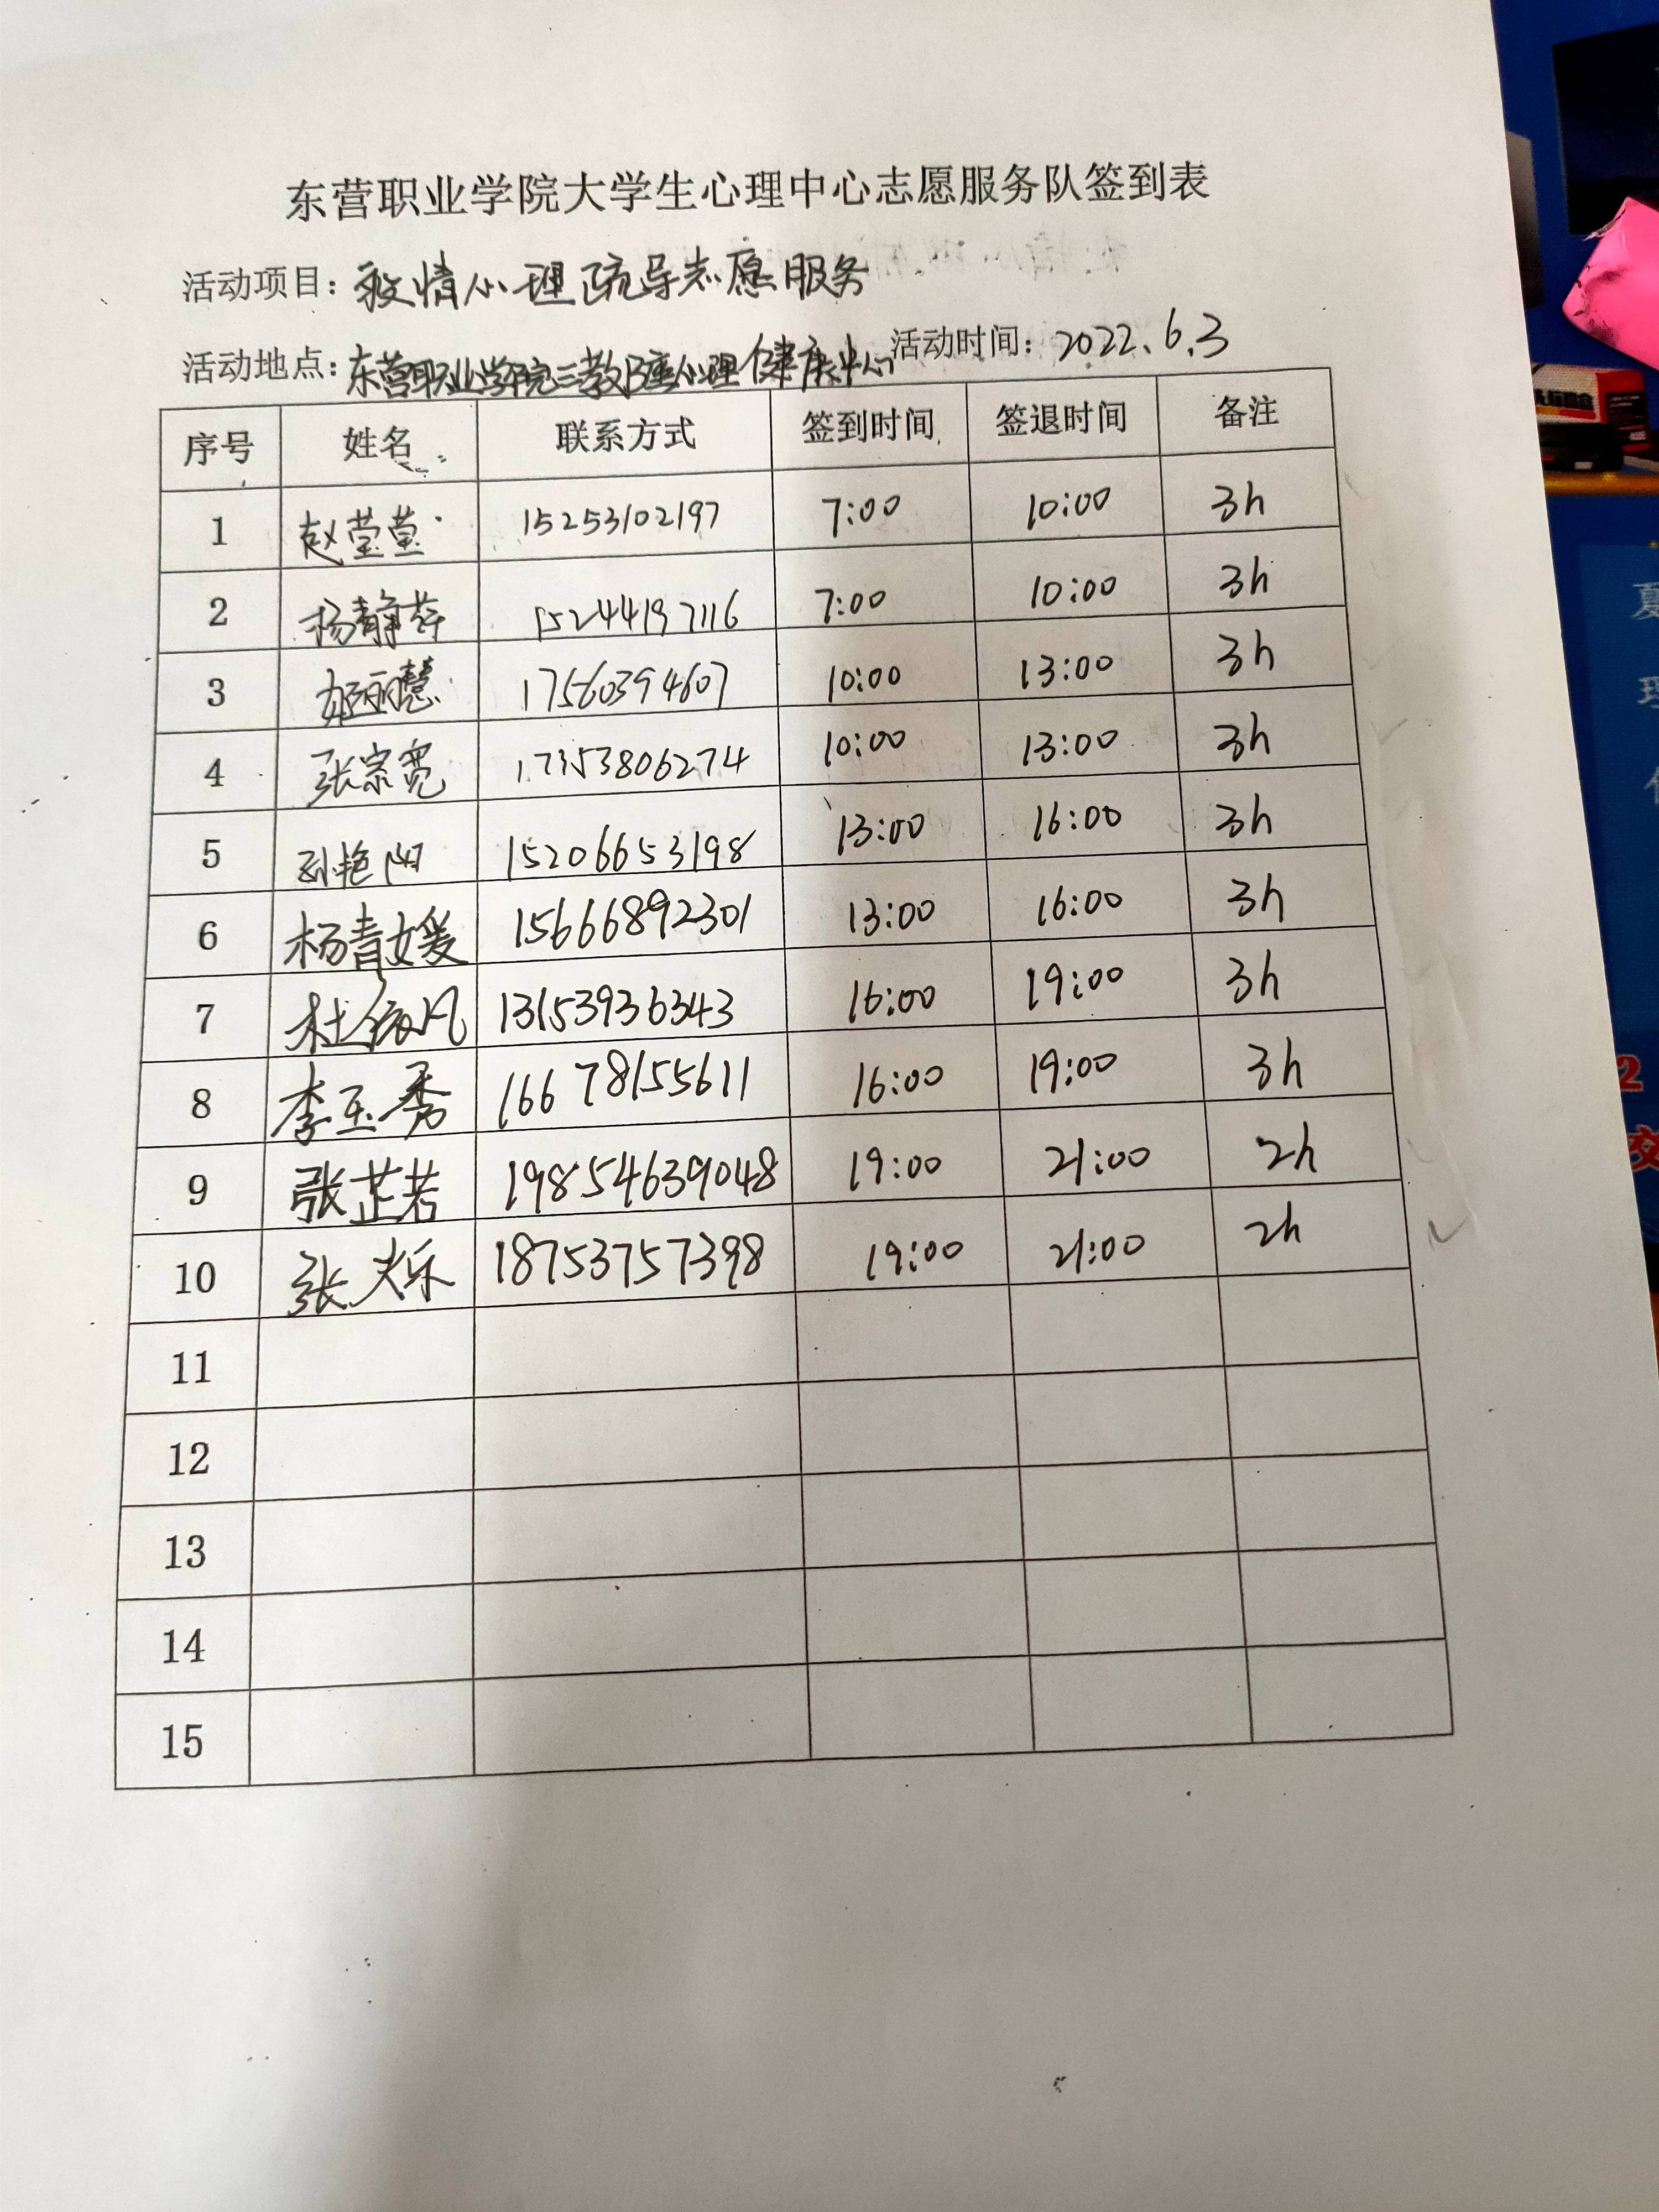 东营职业学院大学生心理中心志愿服务队签到表
活动项目：疫情心理疏导志愿服务
活动地点：东营职业学院三教B座心理健康中心 活动时间：2022.6.3
序号 姓名 联系方式 签到时间 签退时间 备注
1 赵莹莹 15253102197 7:00 10:00 3h
2 杨静萍 15244197116 7:00 10:00 3h
3 丽慧 17560394607 10:00 13:00 3h
4 张宗宽 17353806274 10:00 13:00 3h
5 孙艳阳 15206653198 13:00 16:00 3h
6 杨青媛 15666892301 13:00 16:00 3h
7 杜 凡 13153936343 16:00 19:00 3h
8 李玉秀 16678155611 16:00 19:00 3h
9 张芷若 198546639048 19:00 21:00 2h
10 张 乐 18753757398 19:00 21:00 2h
11
12
13
14
15
夏
2